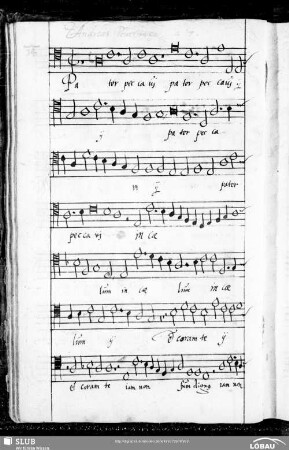 Pa ter peccavi pater peccavi ij
ij pater pecca
vi ij pater
peccavi in cæ
lum in cæ lum in cæ
lum ij & coram te ij
& coram te iam non sum dignus iam non
SLUB
Wir führen Wissen.
LÖBAU